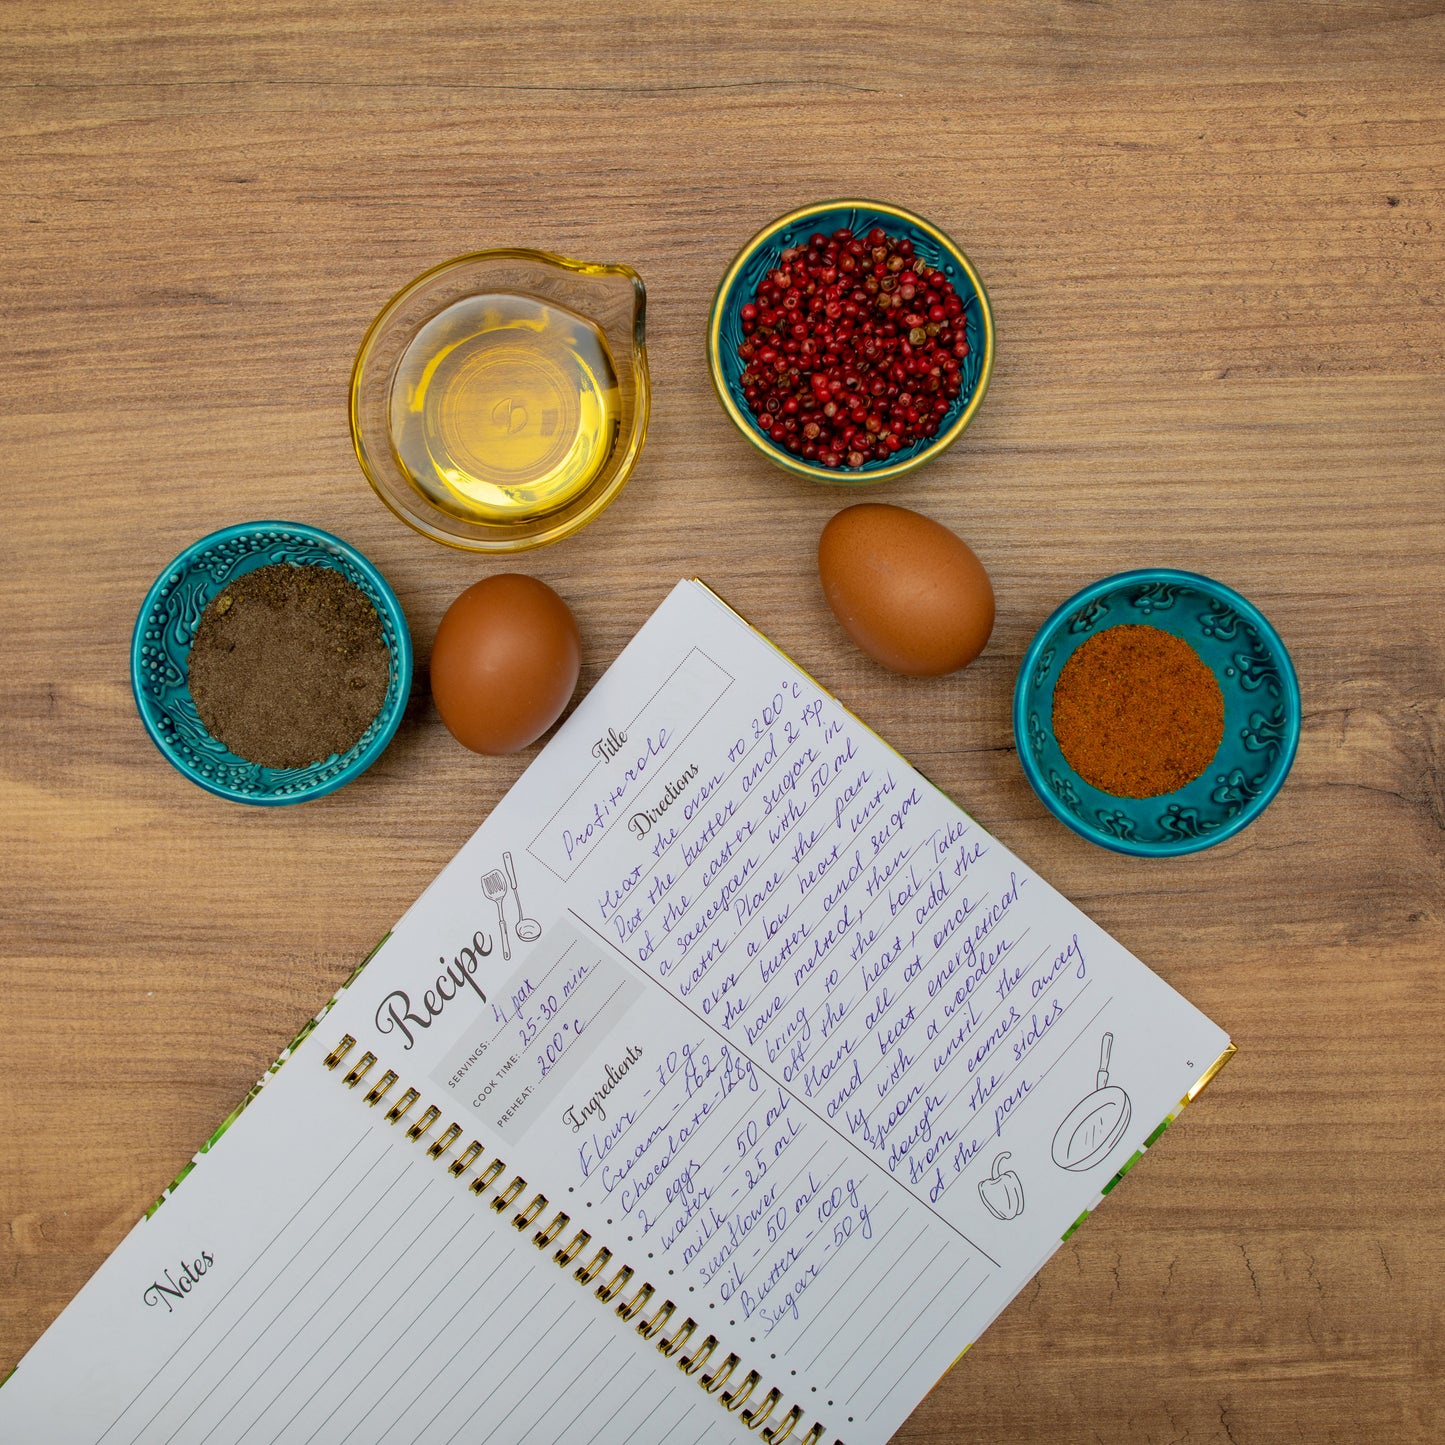 Recipe
SERVINGS: 4 pax
COOK TIME: 25-30 min
PREHEAT: 200°C
Title
Profiterole
Directions
Heat the oven to 200°C
Put the butter and 2 tsp
of the caster sugar in
a saucepan with 50 ml
water. Place the pan
over a low heat until
the butter and sugar
have melted, then
bring to the boil. Take
off the heat, add the
flour all at once
and beat energetical-
ly with a wooden
spoon until the
dough comes away
from the sides
of the pan.
Ingredients
Flour - 70 g
Cream - 162 g
Chocolate - 128g
2 eggs
water - 50 ml
milk - 25 ml
sunflower
oil - 50 ml
Butter - 100 g
Sugar - 50 g
5
Notes